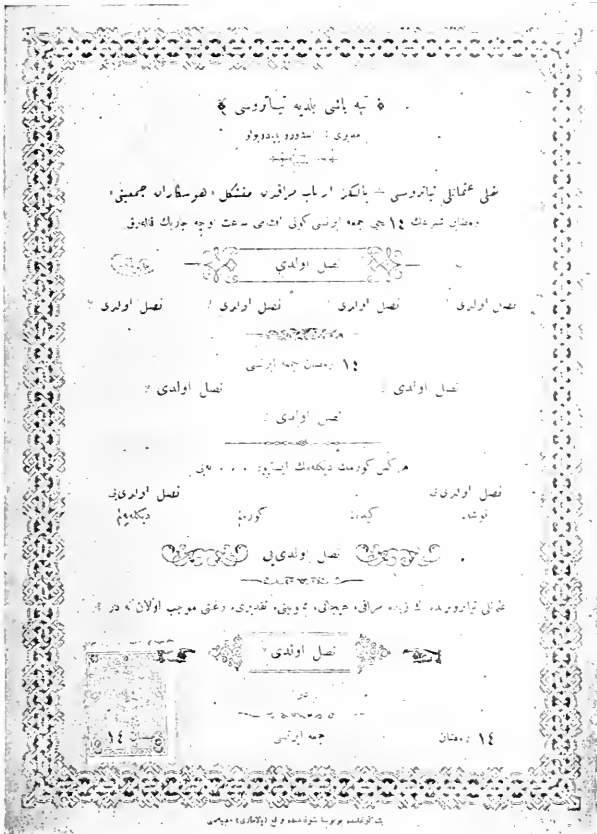 تپه باشی بلدیه تیاتروسی
مدیری :
عثمانلی تیاتروسی — یالکز ارباب مراقدن متشکل « هوسکاران جمعیتی »
رمضان شریفك ١٤ نجی جمعه ایرتسی کونی اقشامی ساعت اوچه چاریك قاله‌رق
نصل اولدی
نصل اولدی ؟ نصل اولدی ؟ نصل اولدی ؟ نصل اولدی ؟
١٤ رمضان جمعه ایرتسی
نصل اولدی ؟ نصل اولدی ؟
نصل اولدی ؟
هرکس کورمك دیکله‌مك ایستیور . . . . نه‌یی
نصل اولدی‌یی نصل اولدی‌یی
قوشه‌ کیده‌ کوره‌ دیکله‌یه‌لم
نصل اولدی‌یی
عثمانلی تیاترولرنده اك زیاده مراقی، هیجانی، ممنونیتی، تقدیری، رغبتی موجب اولان نه در ؟
نصل اولدی ؟
در
١٤ رمضان جمعه ایرتسی ١٤ رمضان